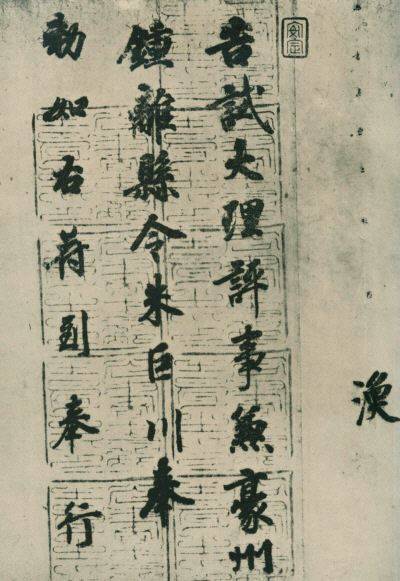 渙
告試大理評事兼豪州
鍾離縣令朱巨川奉
勅如右苻到奉行